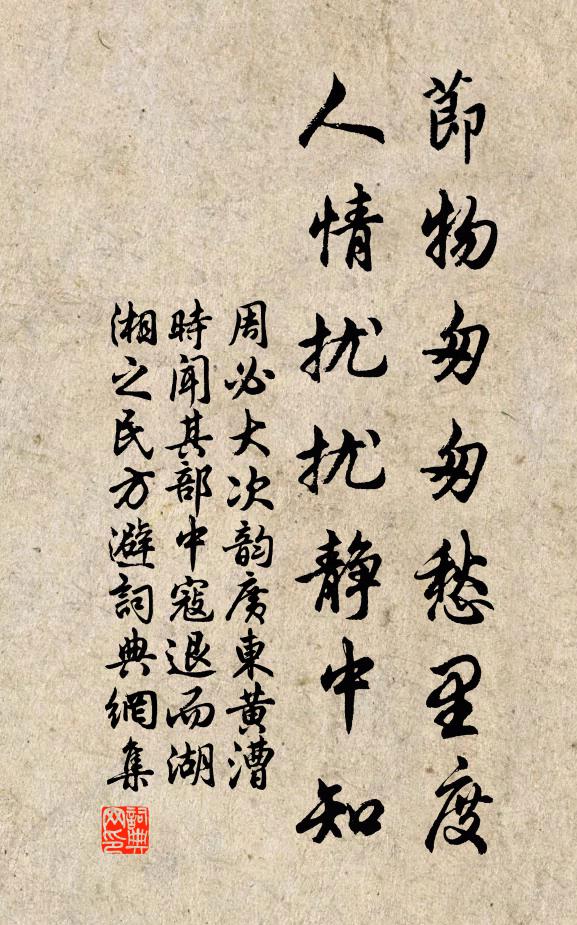 節物匆匆愁里度
人情扰扰静中知
周必大次韵廣東黃漕
時闻其部中寇退而湖
湘之民方避詞典網集
詞典
网印